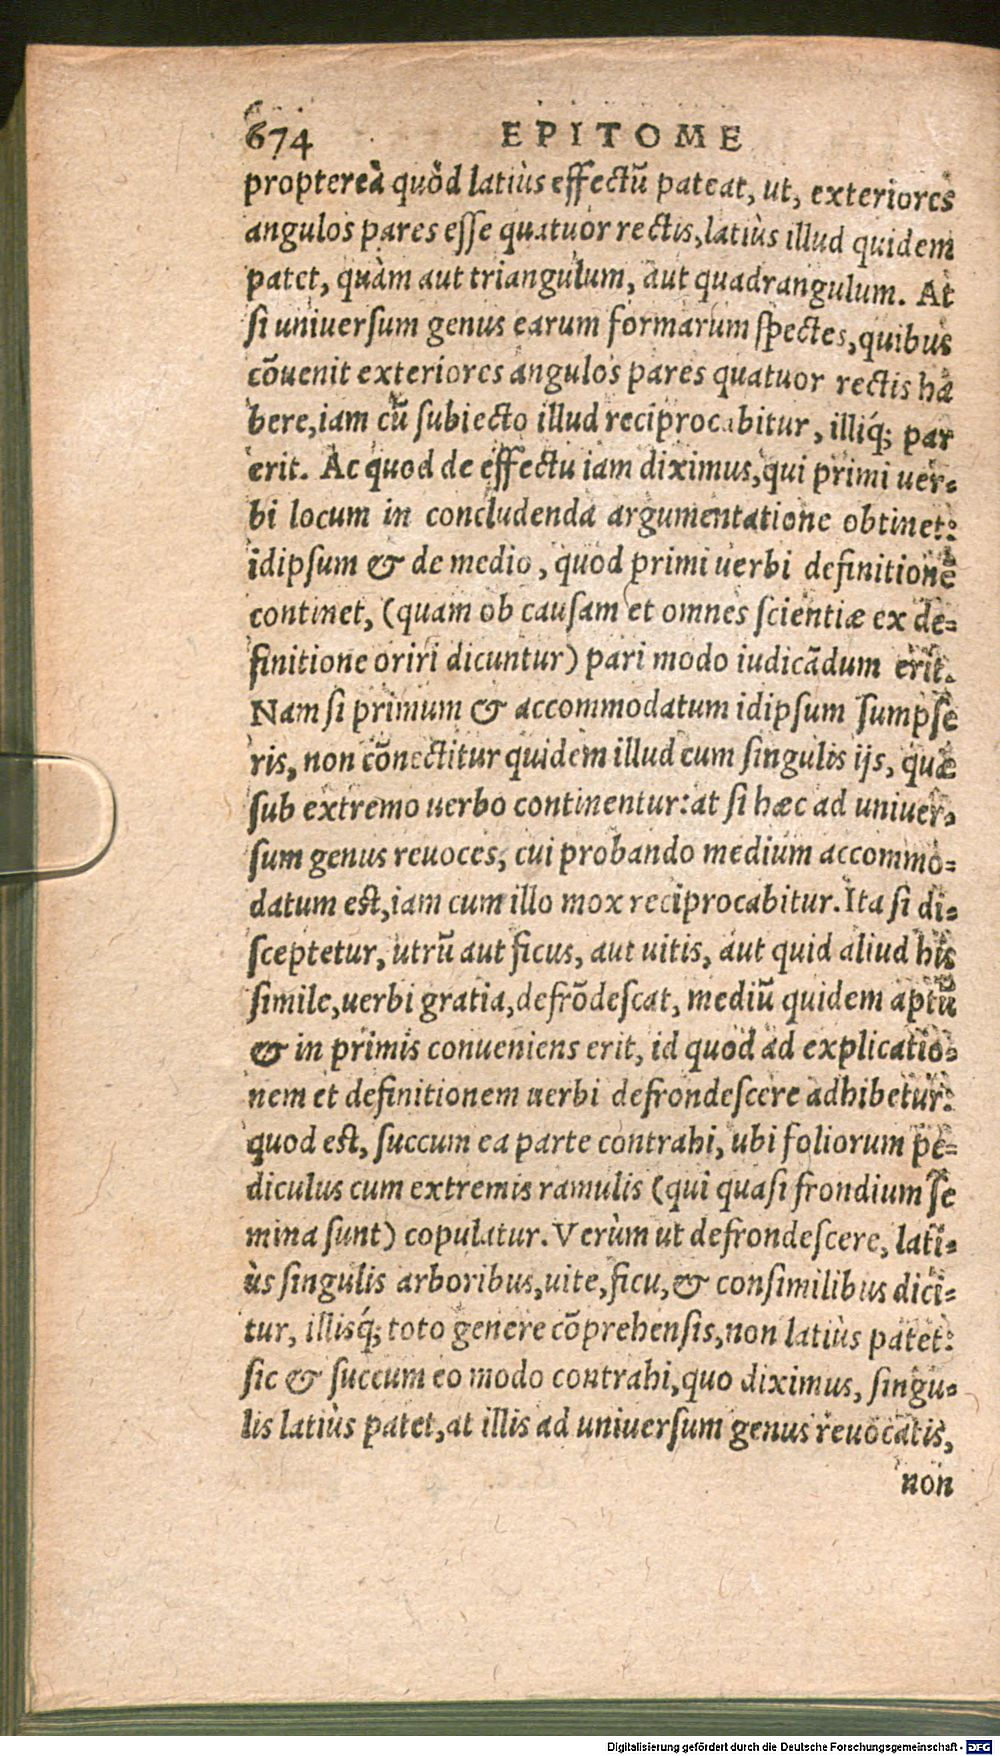 674 EPITOME
propterea quòd latiùs effectũ pateat, ut, exteriores
angulos pares esse quatuor rectis, latiùs illud quidem
patet, quàm aut triangulum, aut quadrangulum. At
si uniuersum genus earum formarum spectes, quibus
cõuenit exteriores angulos pares quatuor rectis ha
bere, iam cũ subiecto illud reciprocabitur, illiq́; par
erit. Ac quod de effectu iam diximus, qui primi uer-
bi locum in concludenda argumentatione obtinet:
idipsum & de medio, quod primi uerbi definitionẽ
continet, (quam ob causam et omnes scientiæ ex de-
finitione oriri dicuntur) pari modo iudicãdum erit.
Nam si primum & accommodatum idipsum sumpse
ris, non cõnectitur quidem illud cum singulis ijs, quæ
sub extremo uerbo continentur: at si hæc ad uniuer-
sum genus reuoces, cui probando medium accommo-
datum est, iam cum illo mox reciprocabitur. Ita si di-
sceptetur, utrũ aut ficus, aut uitis, aut quid aliud his
simile, uerbi gratia, defrõdescat, mediũ quidem aptũ
& in primis conueniens erit, id quod ad explicatio-
nem et definitionem uerbi defrondescere adhibetur:
quod est, succum ea parte contrahi, ubi foliorum pe-
diculus cum extremis ramulis (qui quasi frondium se
mina sunt) copulatur. Verùm ut defrondescere, lati-
ùs singulis arboribus, uite, ficu, & consimilibus dici-
tur, illisq́; toto genere cõprehensis, non latiùs patet:
sic & succum eo modo contrahi, quo diximus, singu-
lis latiùs patet, at illis ad uniuersum genus reuocatis,
non
Digitalisierung gefördert durch die Deutsche Forschungsgemeinschaft - DFG